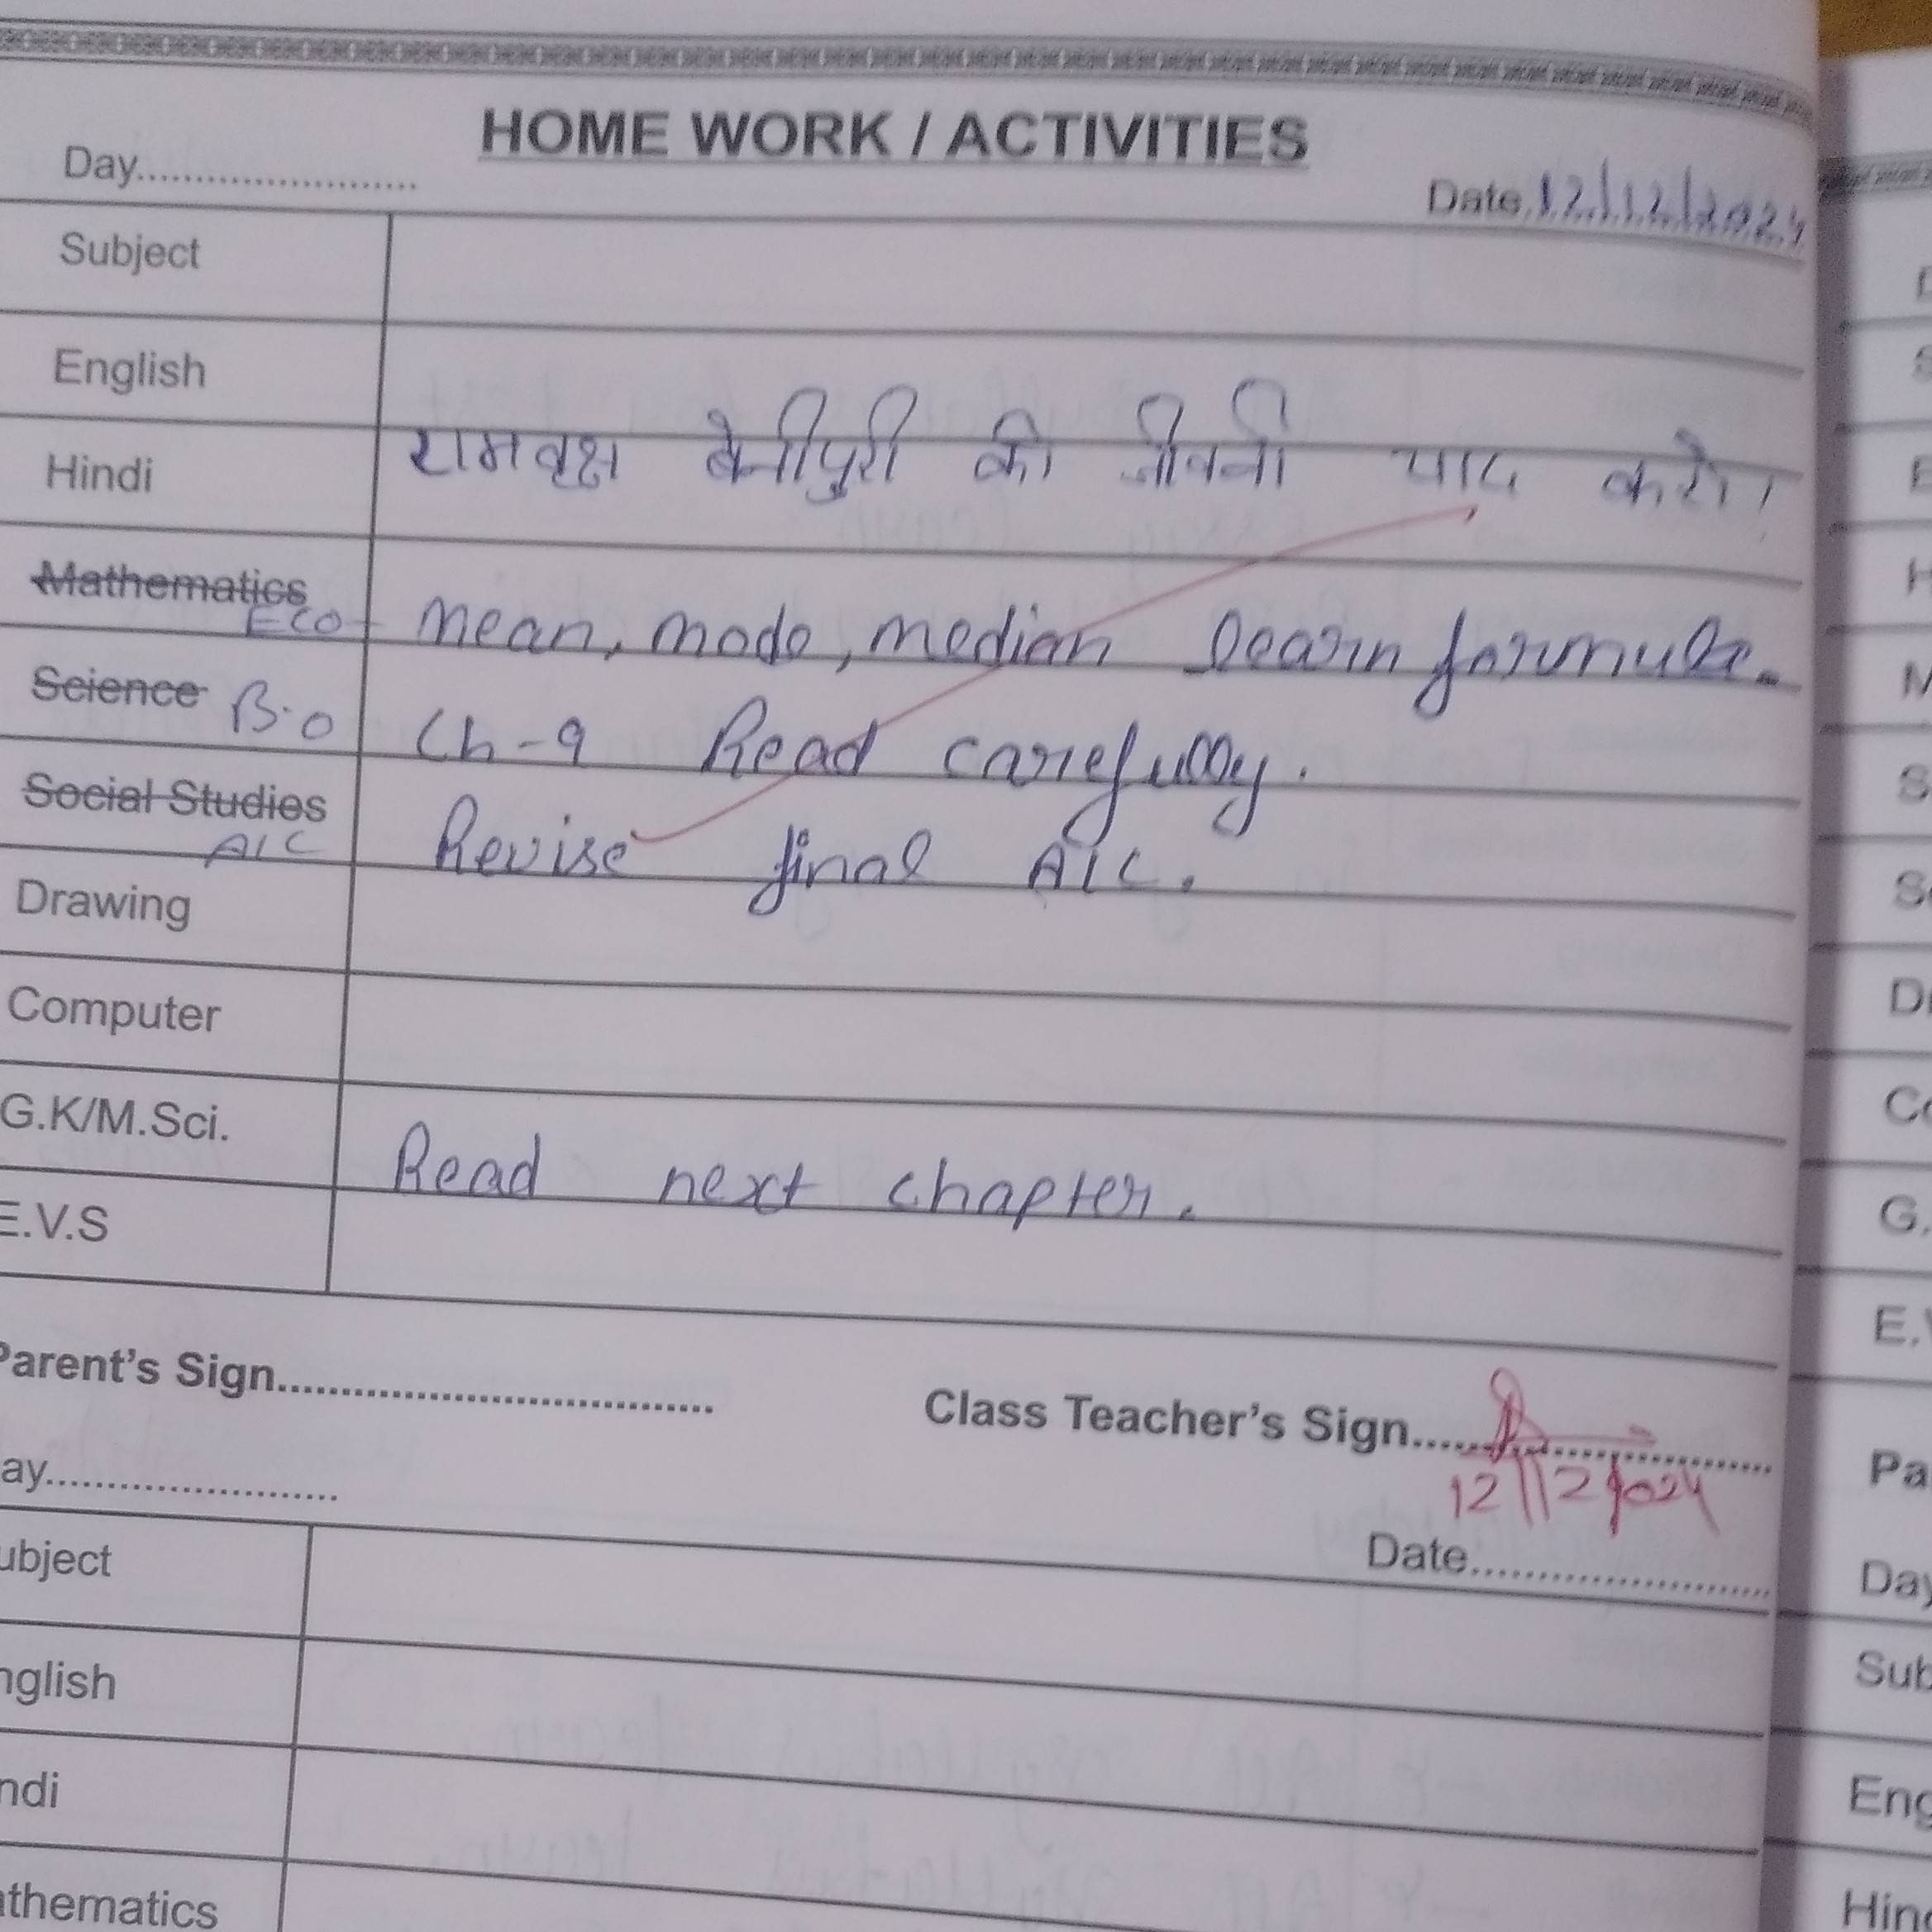 HOME WORK / ACTIVITIES
Day........................ Date 12/12/2024
Subject
English
Hindi रामवृक्ष बेनीपुरी की जीवनी याद करो।
Mathematics Eco - Mean, mode, median learn formula.
Science B.O Ch-9 Read carefully.
Social Studies A/C Revise final A/C.
Drawing
Computer
G.K/M.Sci. Read next chapter.
E.V.S
Parent's Sign.................................... Class Teacher's Sign..............................
12/12/2024
ay......................... Date.........................
ubject
nglish
ndi
thematics
D
S
E
H
M
S
S
D
C
G.
E.V
Pa
Day
Sub
Eng
Hin